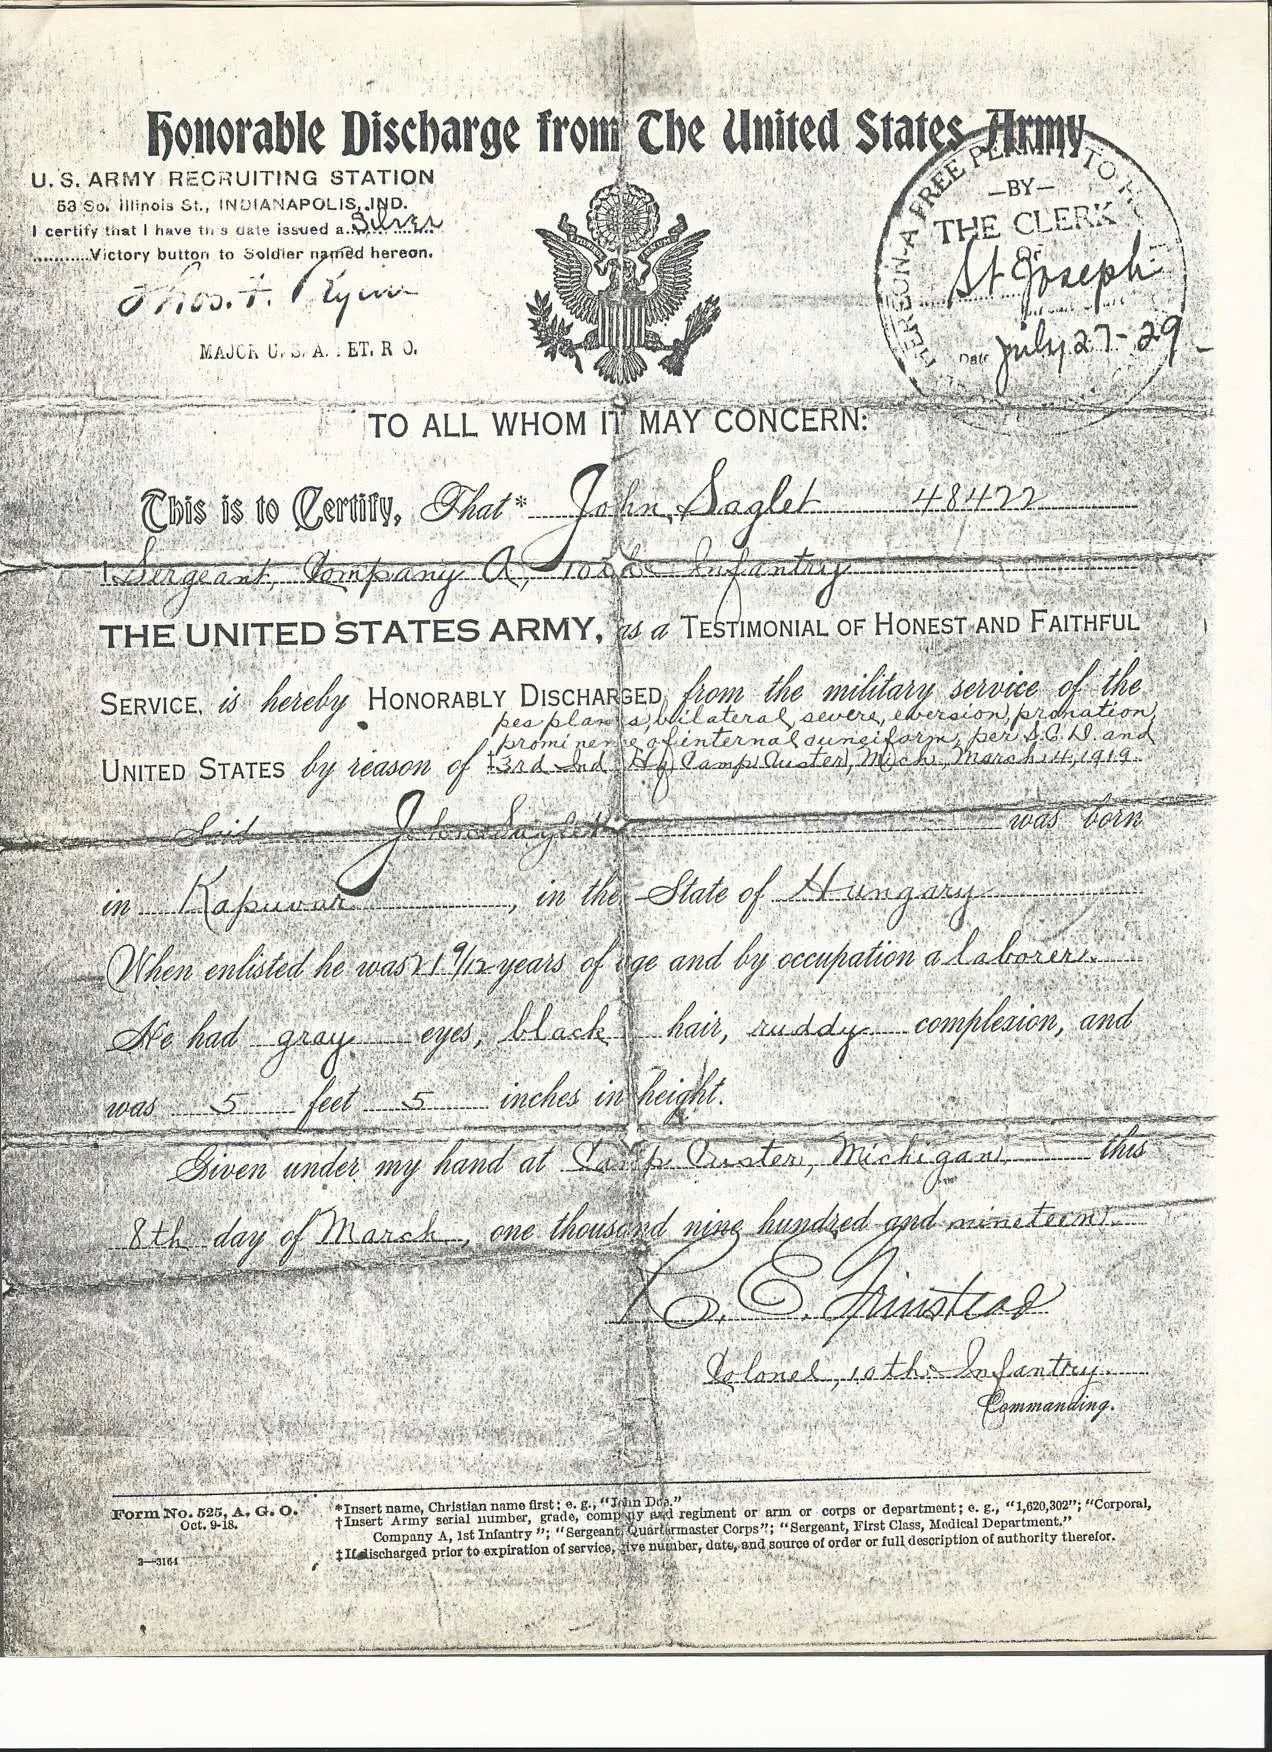 Honorable Discharge from The United States Army
U. S. ARMY RECRUITING STATION
53 So. Illinois St., INDIANAPOLIS, IND.
I certify that I have this date issued a Silver
Victory button to Soldier named hereon.
Thos. F.
MAJOR U. S. A. RET. R O.
HEREON A FREE PERMIT TO
—BY—
THE CLERK
OF
St Joseph
Date July 27-29
TO ALL WHOM IT MAY CONCERN:
This is to Certify, That* John Saglet 48422
1. Sergeant, Company A, 10th Infantry
THE UNITED STATES ARMY, as a TESTIMONIAL OF HONEST AND FAITHFUL
SERVICE, is hereby HONORABLY DISCHARGED from the military service of the
pes planus, bilateral, severe, eversion, pronation,
prominence of internal cuneiform, per S.C.D. and
UNITED STATES by reason of ‡3rd Ind Hq Camp Custer, Mich., March 4, 1919.
Said John Saglet was born
in Kapuvar, in the State of Hungary
When enlisted he was 21 9/12 years of age and by occupation a laborer.
He had gray eyes, black hair, ruddy complexion, and
was 5 feet 5 inches in height.
Given under my hand at Camp Custer, Michigan, this
8th day of March, one thousand nine hundred and nineteen.
C. E. Grinstead
Colonel, 10th Infantry
Commanding.
Form No. 525, A. G. O.
Oct. 9-18.
3—3164
*Insert name, Christian name first; e. g., "John Doe."
†Insert Army serial number, grade, company and regiment or arm or corps or department; e. g., "1,620,302"; "Corporal,
Company A, 1st Infantry"; "Sergeant, Quartermaster Corps"; "Sergeant, First Class, Medical Department."
‡If discharged prior to expiration of service, give number, date, and source of order or full description of authority therefor.